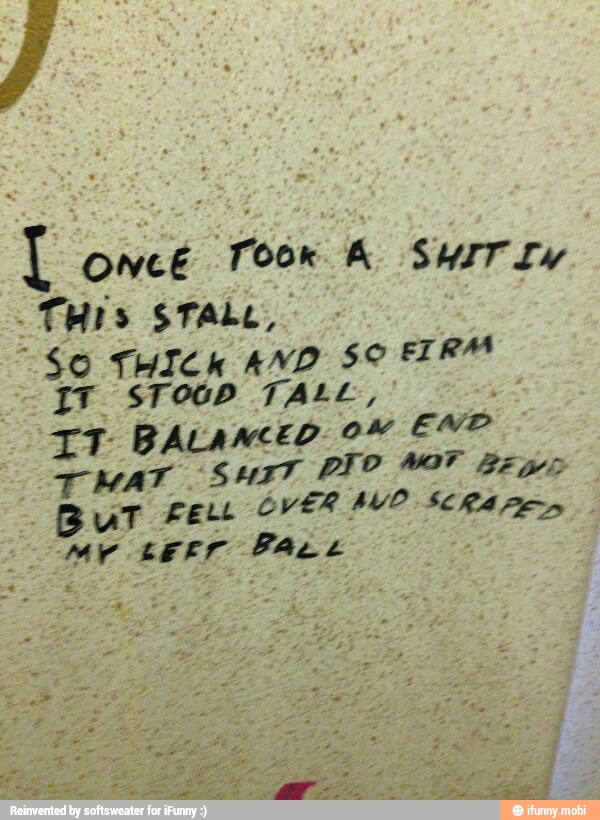 I ONCE TOOK A SHIT IN
THIS STALL,
SO THICK AND SO FIRM
IT STOOD TALL,
IT BALANCED ON END
THAT SHIT DID NOT BEND
BUT FELL OVER AND SCRAPED
MY LEFT BALL
Reinvented by softsweater for iFunny :)
ifunny.mobi